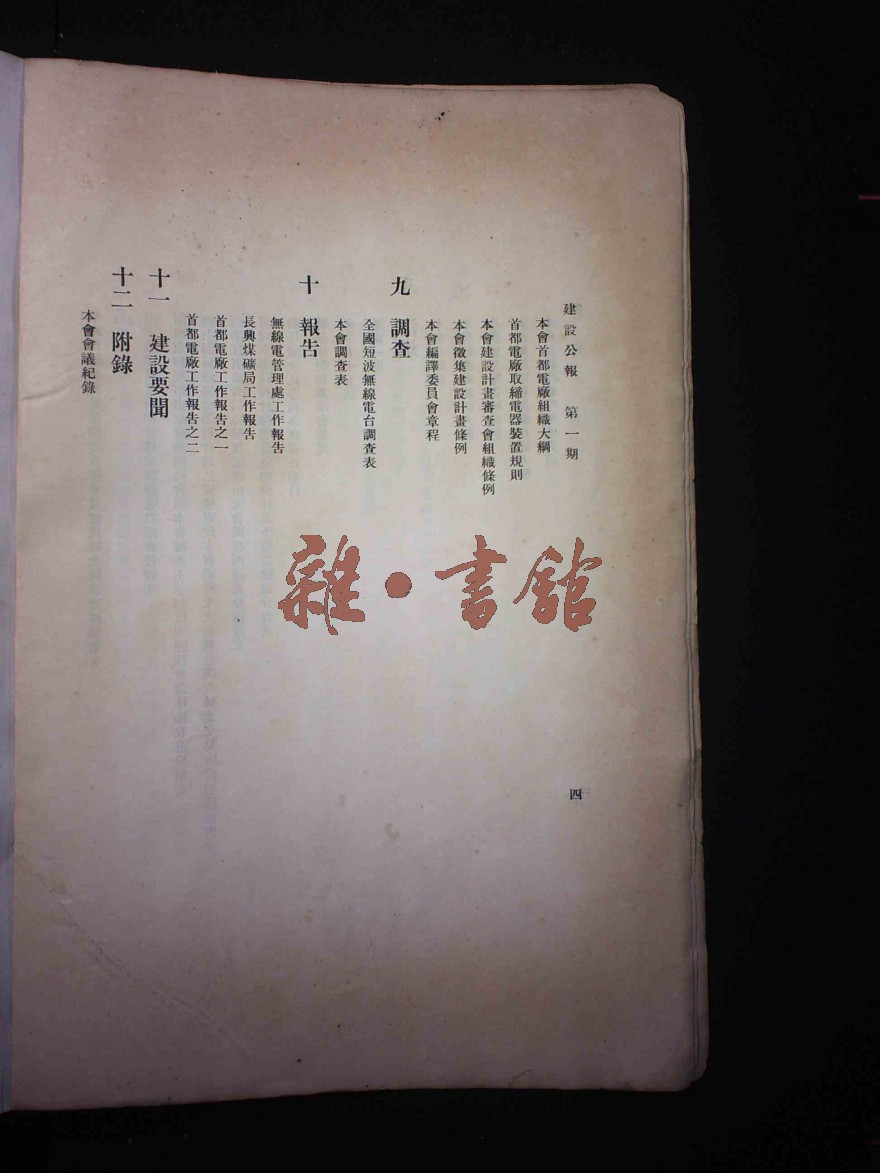 建設公報　第一期
四
本會首都電廠組織大綱
首都電廠取締電器裝置規則
本會建設計畫審查會組織條例
本會徵集建設計畫條例
本會編譯委員會章程
九　調查
全國短波無線電台調查表
本會調查表
十　報告
無線電管理處工作報告
長興煤礦局工作報告
首都電廠工作報告之一
首都電廠工作報告之二
十一　建設要聞
十二　附錄
本會會議紀錄
雜·書館